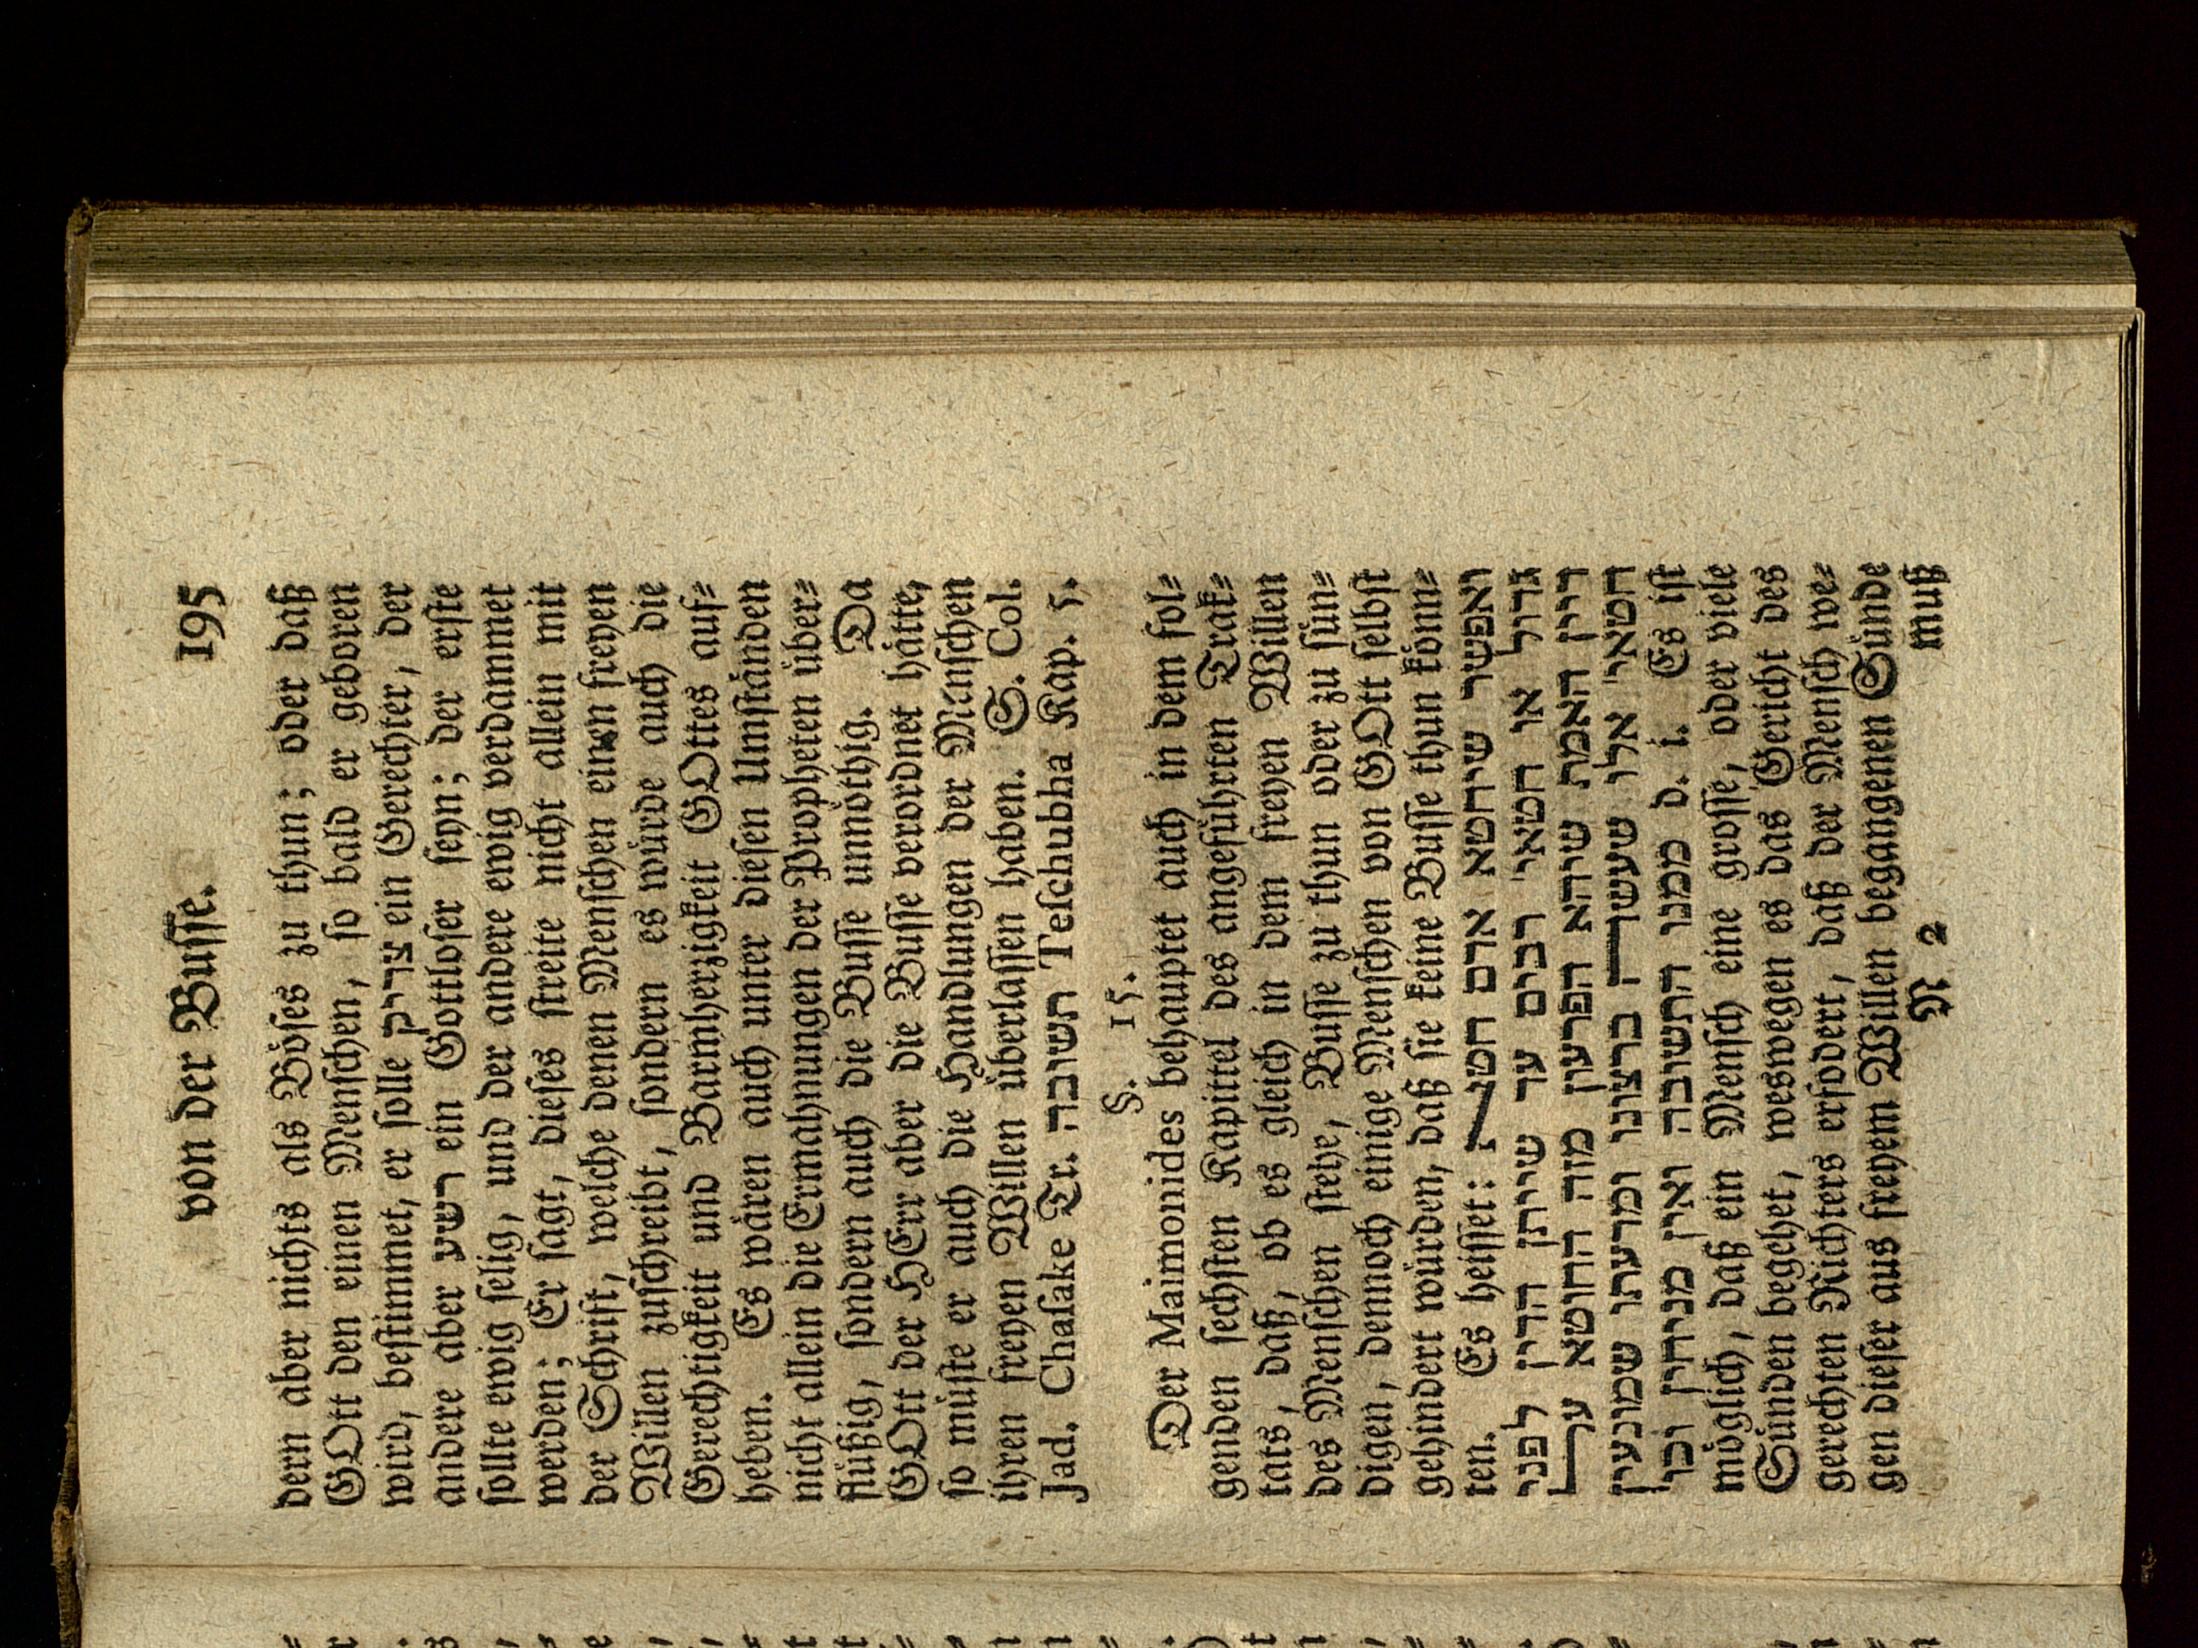 von der Busse. 195
dern aber nichts als Böses zu thun; oder daß
GOtt den einen Menschen, so bald er geboren
wird, bestimmet, er solle צדיק ein Gerechter, der
andere aber רשע ein Gottloser seyn; der erste
sollte ewig selig, und der andere ewig verdammet
werden; Er sagt, dieses streite nicht allein mit
der Schrift, welche denen Menschen einen freyen
Willen zuschreibt, sondern es würde auch die
Gerechtigkeit und Barmherzigkeit GOttes auf=
heben. Es wären auch unter diesen Umständen
nicht allein die Ermahnungen der Propheten über=
flüßig, sondern auch die Busse unnöthig. Da
GOtt der HErr aber die Busse verordnet hätte,
so müste er auch die Handlungen der Menschen
ihren freyen Willen überlassen haben. S. Col.
Jad. Chasake Tr. תשובה Teschubha Kap. 5.
§. 15.
Der Maimonides behauptet auch in dem fol=
genden sechsten Kapittel des angeführten Trak=
tats, daß, ob es gleich in dem freyen Willen
des Menschen stehe, Busse zu thun oder zu sün=
digen, dennoch einige Menschen von GOtt selbst
gehindert würden, daß sie keine Busse thun könn=
ten. Es heisset: ואפשר שיחטא אדם חטא
גדול או חטאי רבים עד שייתן הדין לפני
דיין האמת שיהא הפרעון מזה החוטא על
חטאי אלו שעשה ברצונו ומדעתו שמונעין
ממנו התשובה ואין מניחין וכו׳ d. i. Es ist
möglich, daß ein Mensch eine grosse, oder viele
Sünden begehet, weswegen es das Gericht des
gerechten Richters erfodert, daß der Mensch we=
gen dieser aus freyem Willen begangenen Sünde
N 2 muß